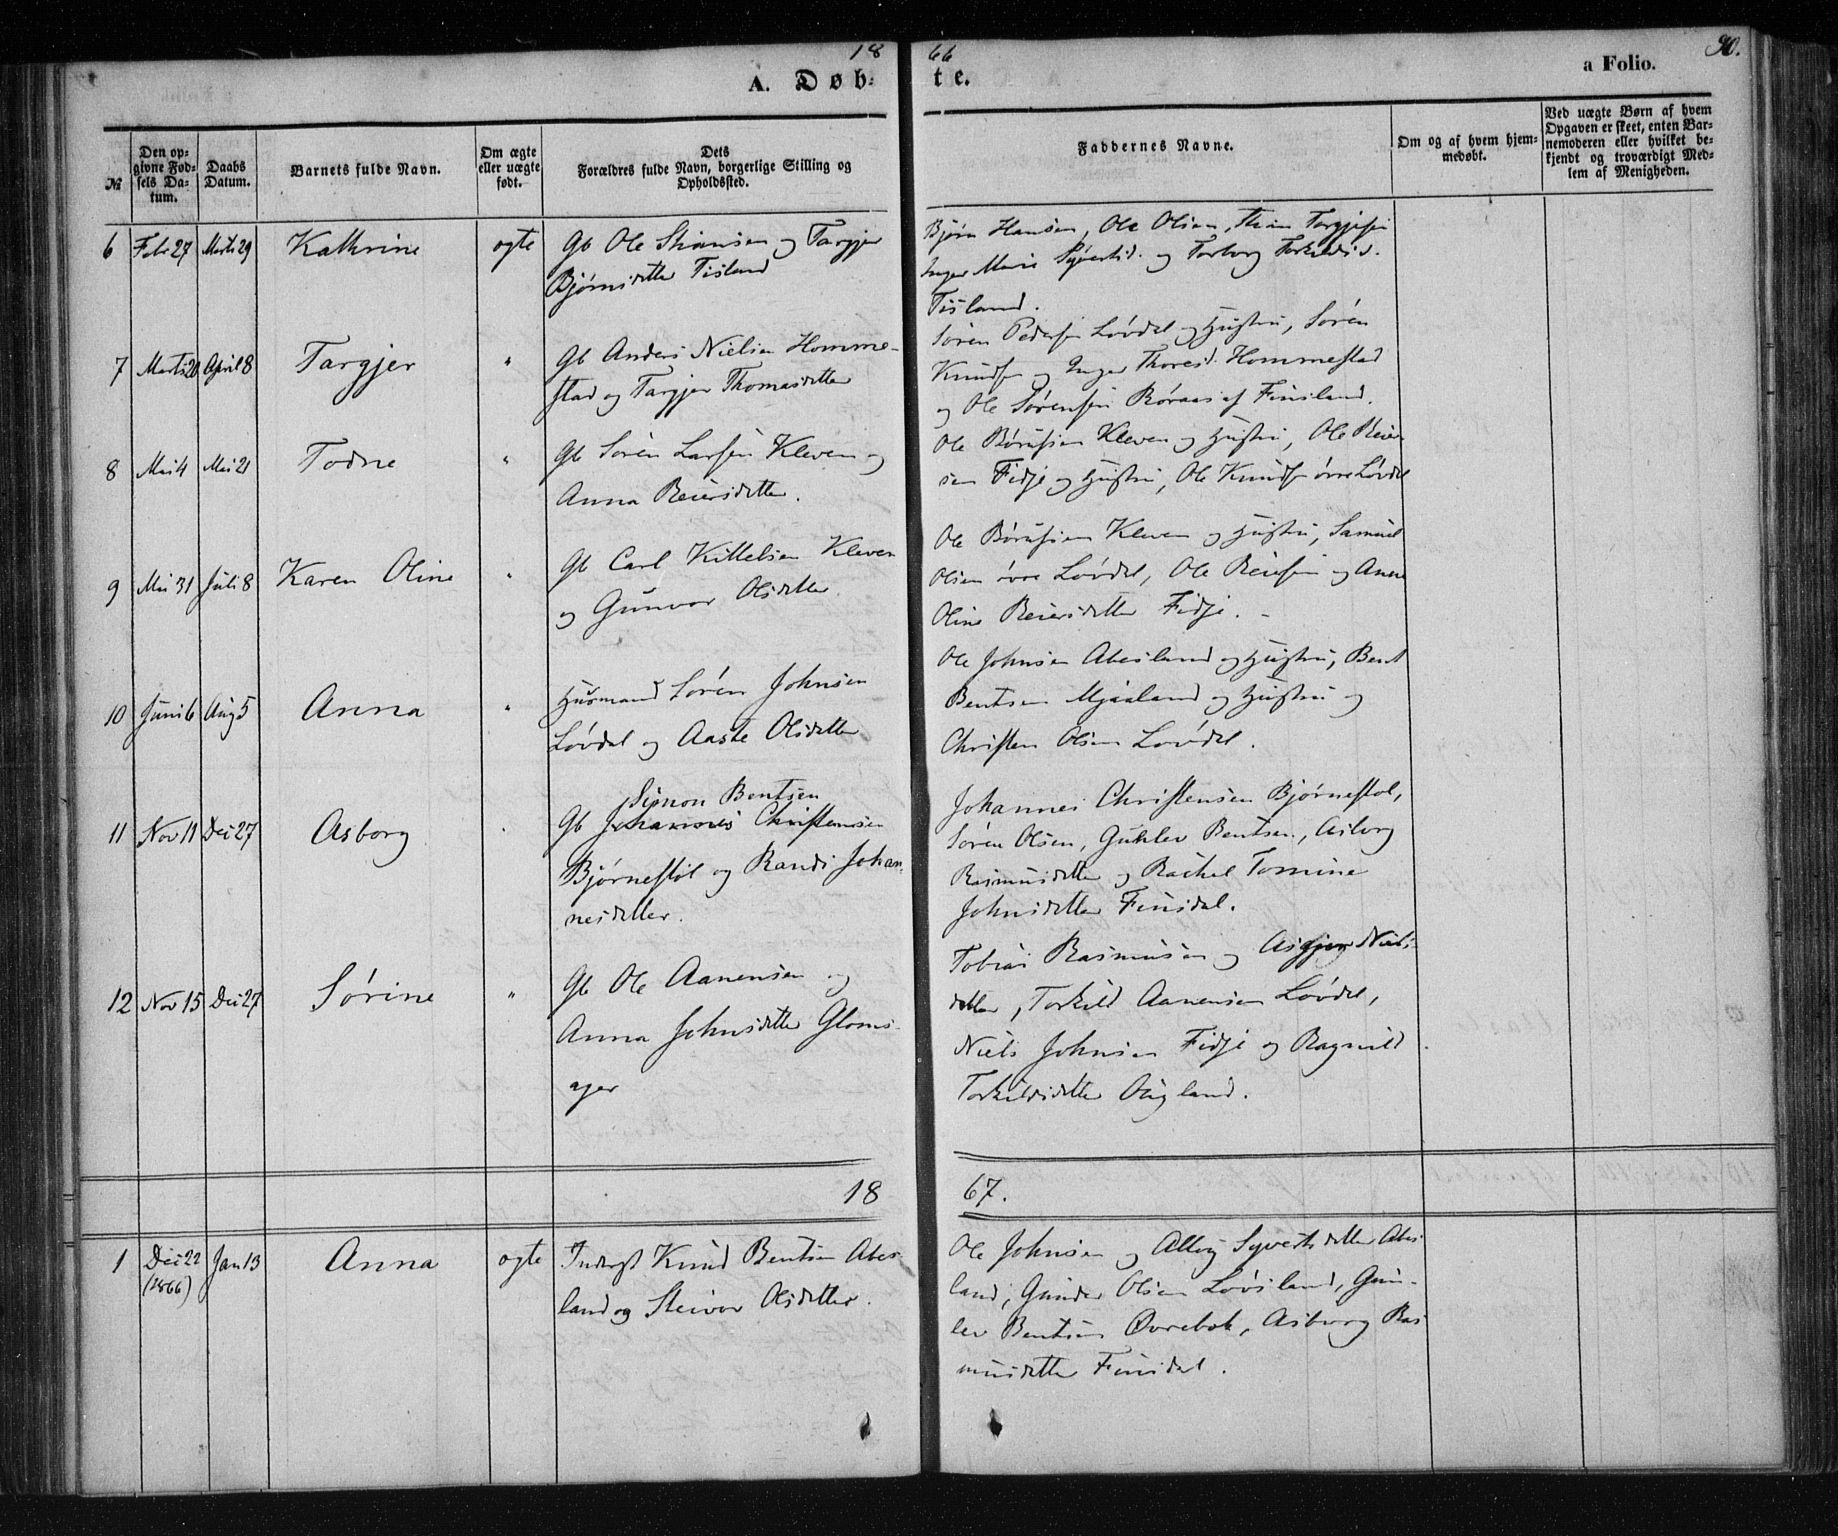 18 66 90.
A. Døb- te. a Folio.
№
Den op-
givne Fød-
sels Da-
tum.
Daabs
Datum.
Barnets fulde Navn.
Om ægte
eller uægte
født.
Dets
Forældres fulde Navn, borgerlige Stilling og
Opholdssted.
Faddernes Navne.
Om og af hvem hjem-
medøbt.
Ved uægte Børn af hvem
Opgaven er skeet, enten Bar-
nemoderen eller hvilket be-
kjendt og troværdigt Med-
lem af Menigheden.
6 Febr 27 Marts 29 Kathrine ogte Gb Ole Stiansen og Targjer
Bjørnsdatter Tisland
Bjørn Hansen, Ole Olsen, Stian Torgjesen
Inger Marie Syvertsd. og Torborg Torkildsd.
Tisland.
7 Marts 20 April 8 Targjer " Gb Anders Nielsen Homme-
stad og Targjer Thomasdatter
Søren Pedersen Løvdal og Hustru, Søren
Knudsen og Inger Thoresd. Hommestad
og Ole Sørensen Røraas af Finsland.
8 Mai 4 Mai 21 Todne " Gb Søren Larsen Kleven og
Anna Reiersdatter.
Ole Børufsen Kleven og Hustru, Ole Reier-
sen Fidje og Hustru, Ole Knudsen øvre Løvdal
9 Mai 31 Juli 8 Karen Oline " Gb Carl Kittelsen Kleven
og Gunvor Olsdatter
Ole Børufsen Kleven og Hustru, Samuel
Olsen øvre Løvdal, Ole Reiersen og Anne
Oline Reiersdatter Fidje.
10 Juni 6 Aug 5 Anna " Husmand Søren Johnsen
Løvdal og Aaste Olsdatter
Ole Johnsen Abesland og Hustru, Bent
Bentsen Mjaaland og Hustru og
Christen Olsen Løvdal.
11 Nov 11 Dec 27 Asborg " Simon Bentsen
Gb Johannes Christensen
Bjørnestøl og Randi Johan-
nesdatter.
Johannes Christensen Bjørnestøl,
Søren Olsen, Gunlev Bentsen, Asborg
Rasmusdatter og Rachel Tomine
Johnsdatter Finsdal.
12 Nov 15 Dec 27 Sørine " Gb Ole Aanensen og
Anna Johnsdatter Gloms-
ager
Tobias Rasmussen og Asgjer Niels-
datter, Torkild Aanensen Løvdal,
Niels Johnsen Fidje og Ragnild
Torkildsdatter Augland.
18 67.
1 Dec 22 Jan 13 Anna ogte Inderst Knud Bentsen Abes-
(1866)
land og Steivor Olsdatter.
Ole Johnsen og Allvig Syvertsdatter Abes-
land, Gunder Olsen Løvsland, Gun-
lev Bentsen Øvrebok, Asborg Ras
musdatter Finsdal.